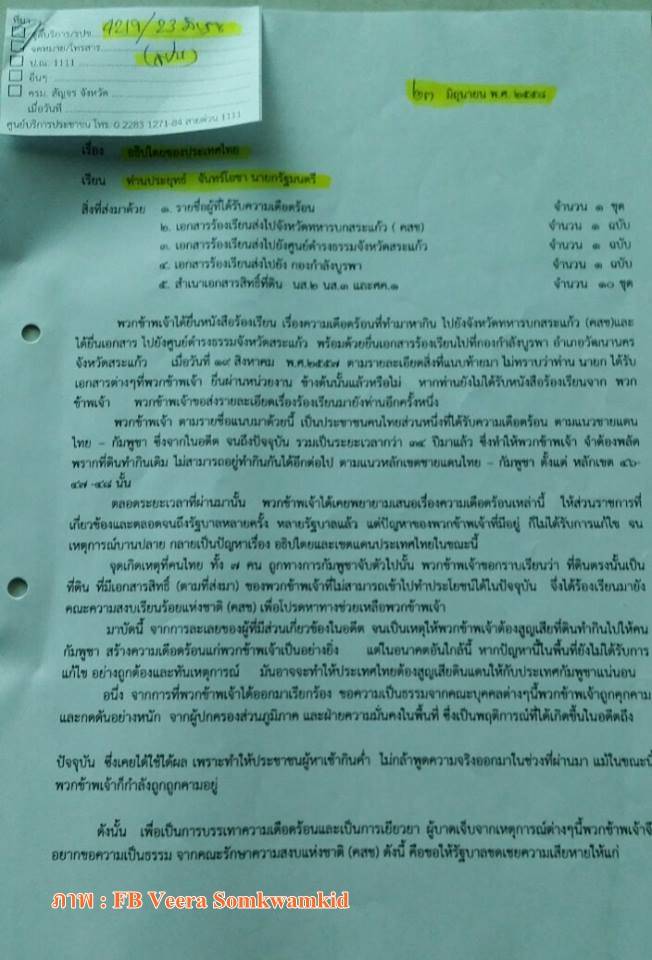 ที่มา
ชุดบริการ/รปช. 4219/23 มิย 58
จดหมาย/โทรสาร
(สปน)
ป.ณ. 1111
อื่นๆ
ครม. สัญจร จังหวัด
เมื่อวันที่
ศูนย์บริการประชาชน โทร. 0 2283 1271-84 สายด่วน 1111
๒๓ มิถุนายน พ.ศ. ๒๕๕๘
เรื่อง อธิปไตยของประเทศไทย
เรียน ท่านประยุทธ์ จันทร์โอชา นายกรัฐมนตรี
สิ่งที่ส่งมาด้วย ๑. รายชื่อผู้ที่ได้รับความเดือดร้อน จำนวน ๑ ชุด
๒. เอกสารร้องเรียนส่งไปจังหวัดทหารบกสระแก้ว ( คสช) จำนวน ๑ ฉบับ
๓. เอกสารร้องเรียนส่งไปยังศูนย์ดำรงธรรมจังหวัดสระแก้ว จำนวน ๑ ฉบับ
๔. เอกสารร้องเรียนส่งไปยัง กองกำลังบูรพา จำนวน ๑ ฉบับ
๕. สำเนาเอกสารสิทธิ์ที่ดิน นส.๒ นส.๓ และศค.๑ จำนวน ๑๐ ชุด
พวกข้าพเจ้าได้ยื่นหนังสือร้องเรียน เรื่องความเดือดร้อนที่ทำมาหากิน ไปยังจังหวัดทหารบกสระแก้ว (คสช)และ
ได้ยื่นเอกสาร ไปยังศูนย์ดำรงธรรมจังหวัดสระแก้ว พร้อมด้วยยื่นเอกสารร้องเรียนไปที่กองกำลังบูรพา อำเภอวัฒนานคร
จังหวัดสระแก้ว เมื่อวันที่ ๑๙ สิงหาคม พ.ศ.๒๕๕๗ ตามรายละเอียดสิ่งที่แนบท้ายมา ไม่ทราบว่าท่าน นายก ได้รับ
เอกสารต่างๆที่พวกข้าพเจ้า ยื่นผ่านหน่วยงาน ข้างต้นนั้นแล้วหรือไม่ หากท่านยังไม่ได้รับหนังสือร้องเรียนจาก พวก
ข้าพเจ้า พวกข้าพเจ้าขอส่งรายละเอียดเรื่องร้องเรียนมายังท่านอีกครั้งหนึ่ง
พวกข้าพเจ้า ตามรายชื่อแนบมาด้วยนี้ เป็นประชาชนคนไทยส่วนหนึ่งที่ได้รับความเดือดร้อน ตามแนวชายแดน
ไทย – กัมพูชา ซึ่งจากในอดีต จนถึงปัจจุบัน รวมเป็นระยะเวลากว่า ๓๔ ปีมาแล้ว ซึ่งทำให้พวกข้าพเจ้า จำต้องพลัด
พรากที่ดินทำกินเดิม ไม่สามารถอยู่ทำกินกันได้อีกต่อไป ตามแนวหลักเขตชายแดนไทย – กัมพูชา ตั้งแต่ หลักเขต ๔๖-
๔๗ -๔๘ นั้น
ตลอดระยะเวลาที่ผ่านมานั้น พวกข้าพเจ้าได้เคยพยายามเสนอเรื่องความเดือดร้อนเหล่านี้ ให้ส่วนราชการที่
เกี่ยวข้องและตลอดจนถึงรัฐบาลหลายครั้ง หลายรัฐบาลแล้ว แต่ปัญหาของพวกข้าพเจ้าที่มีอยู่ ก็ไม่ได้รับการแก้ไข จน
เหตุการณ์บานปลาย กลายเป็นปัญหาเรื่อง อธิปไตยและเขตแดนประเทศไทยในขณะนี้
จุดเกิดเหตุที่คนไทย ทั้ง ๗ คน ถูกทางการกัมพูชาจับตัวไปนั้น พวกข้าพเจ้าขอกราบเรียนว่า ที่ดินตรงนั้นเป็น
ที่ดิน ที่มีเอกสารสิทธิ์ (ตามที่ส่งมา) ของพวกข้าพเจ้าที่ไม่สามารถเข้าไปทำประโยชน์ได้ในปัจจุบัน จึงได้ร้องเรียนมายัง
คณะความสงบเรียนร้อยแห่งชาติ (คสช) เพื่อโปรดหาทางช่วยเหลือพวกข้าพเจ้า
มาบัดนี้ จากการละเลยของผู้ที่มีส่วนเกี่ยวข้องในอดีต จนเป็นเหตุให้พวกข้าพเจ้าต้องสูญเสียที่ดินทำกินไปให้คน
กัมพูชา สร้างความเดือดร้อนแก่พวกข้าพเจ้าเป็นอย่างยิ่ง แต่ในอนาคตอันใกล้นี้ หากปัญหานี้ในพื้นที่ยังไม่ได้รับการ
แก้ไข อย่างถูกต้องและทันเหตุการณ์ มันอาจจะทำให้ประเทศไทยต้องสูญเสียดินแดนให้กับประเทศกัมพูชาแน่นอน
อนึ่ง จากการที่พวกข้าพเจ้าได้ออกมาเรียกร้อง ขอความเป็นธรรมจากคณะบุคคลต่างๆนี้พวกข้าพเจ้าถูกคุกคาม
และกดดันอย่างหนัก จากผู้ปกครองส่วนภูมิภาค และฝ่ายความมั่นคงในพื้นที่ ซึ่งเป็นพฤติการณ์ที่ได้เกิดขึ้นในอดีตถึง
ปัจจุบัน ซึ่งเคยได้ใช้ได้ผล เพราะทำให้ประชาชนผู้หาเช้ากินค่ำ ไม่กล้าพูดความจริงออกมาในช่วงที่ผ่านมา แม้ในขณะนี้
พวกข้าพเจ้าก็กำลังถูกถูกคามอยู่
ดังนั้น เพื่อเป็นการบรรเทาความเดือดร้อนและเป็นการเยียวยา ผู้บาดเจ็บจากเหตุการณ์ต่างๆนี้พวกข้าพเจ้าจึ
อยากขอความเป็นธรรม จากคณะรักษาความสงบแห่งชาติ (คสช) ดังนี้ คือขอให้รัฐบาลชดเชยความเสียหายให้แก่
ภาพ : FB Veera Somkwamkid